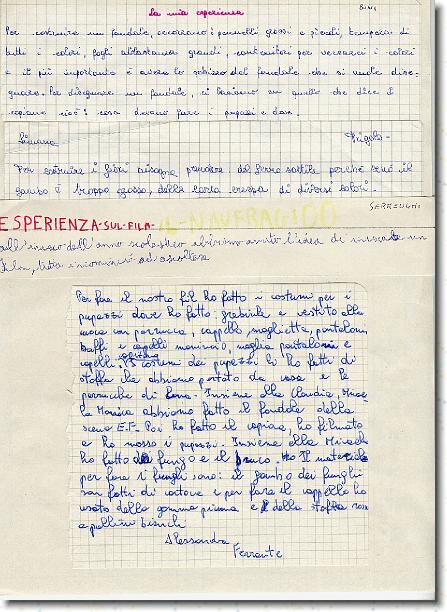 La mia esperienza
Per costruire un fondale, occorrono: pennelli grossi e piccoli, tempera di
tutti i colori, fogli abbastanza grandi, contenitori per versarci i colori
e il più importante è avere lo schizzo del fondale che si vuole dise-
gnare. Per disegnare un fondale, ci basiamo su quello che dice il
copione cioè: cosa devono fare i pupazzi e dove.
Simona Frigola
Per costruire i fiori bisogna prendere del ferro sottile perché senò il
gambo è troppo grosso, della carta crespa di diversi colori.
IL NAUFRAGIO
ESPERIENZA-SUL-FILM-
all'inizio dell'anno scolastico abbiamo avuto l'idea di un
film, tutta ad
Per fare il nostro film ho fatto i costumi per i
pupazzi dove ho fatto: grembiule e vestito alla
con parrucca, cappello, maglietta, pantaloni,
baffi e capelli marinaio, maglia pantaloni e
capelli. I costumi dei pupazzi li ho fatti di
stoffa che abbiamo portato da casa e le
parrucche di lana. Insieme alla Claudia,
la Monica abbiamo fatto il fondale della
scena E.F. Poi ho fatto il copione, ho filmato
e ho mosso i pupazzi. Insieme alla
ho fatto fungo e il bruco. Il materiale
per fare i funghi sono: il gambo dei funghi
son fatti di cartone e per fare il cappello ho
usato della gomma piuma e della stoffa rossa
a pallini bianchi
Alessandra
Ferrante